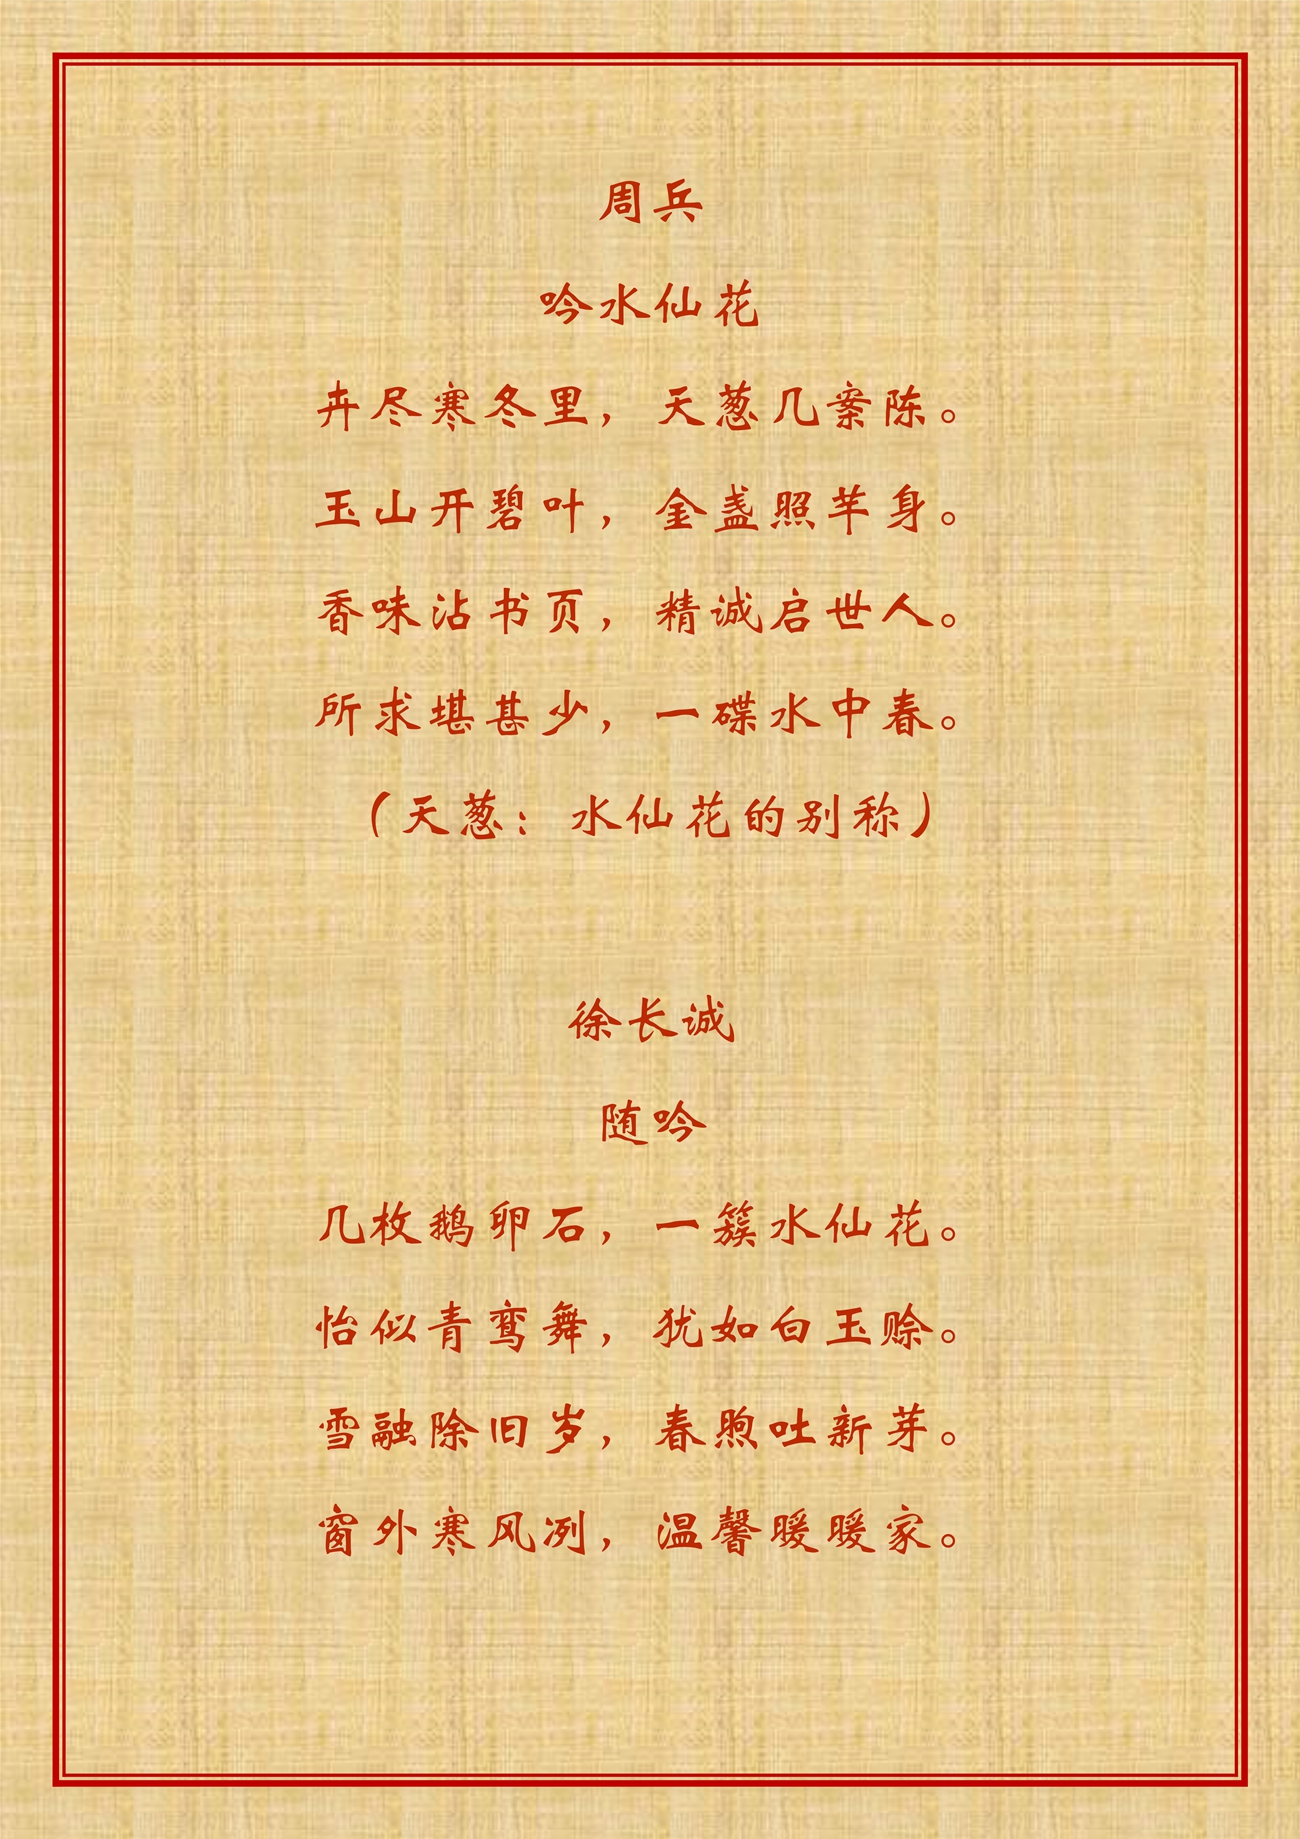 周兵
吟水仙花
卉尽寒冬里，天葱几案陈。
玉山开碧叶，金盏照芊身。
香味沾书页，精诚启世人。
所求堪甚少，一碟水中春。
（天葱：水仙花的别称）
徐长诚
随吟
几枚鹅卵石，一簇水仙花。
怡似青鸾舞，犹如白玉赊。
雪融除旧岁，春煦吐新芽。
窗外寒风冽，温馨暖暖家。